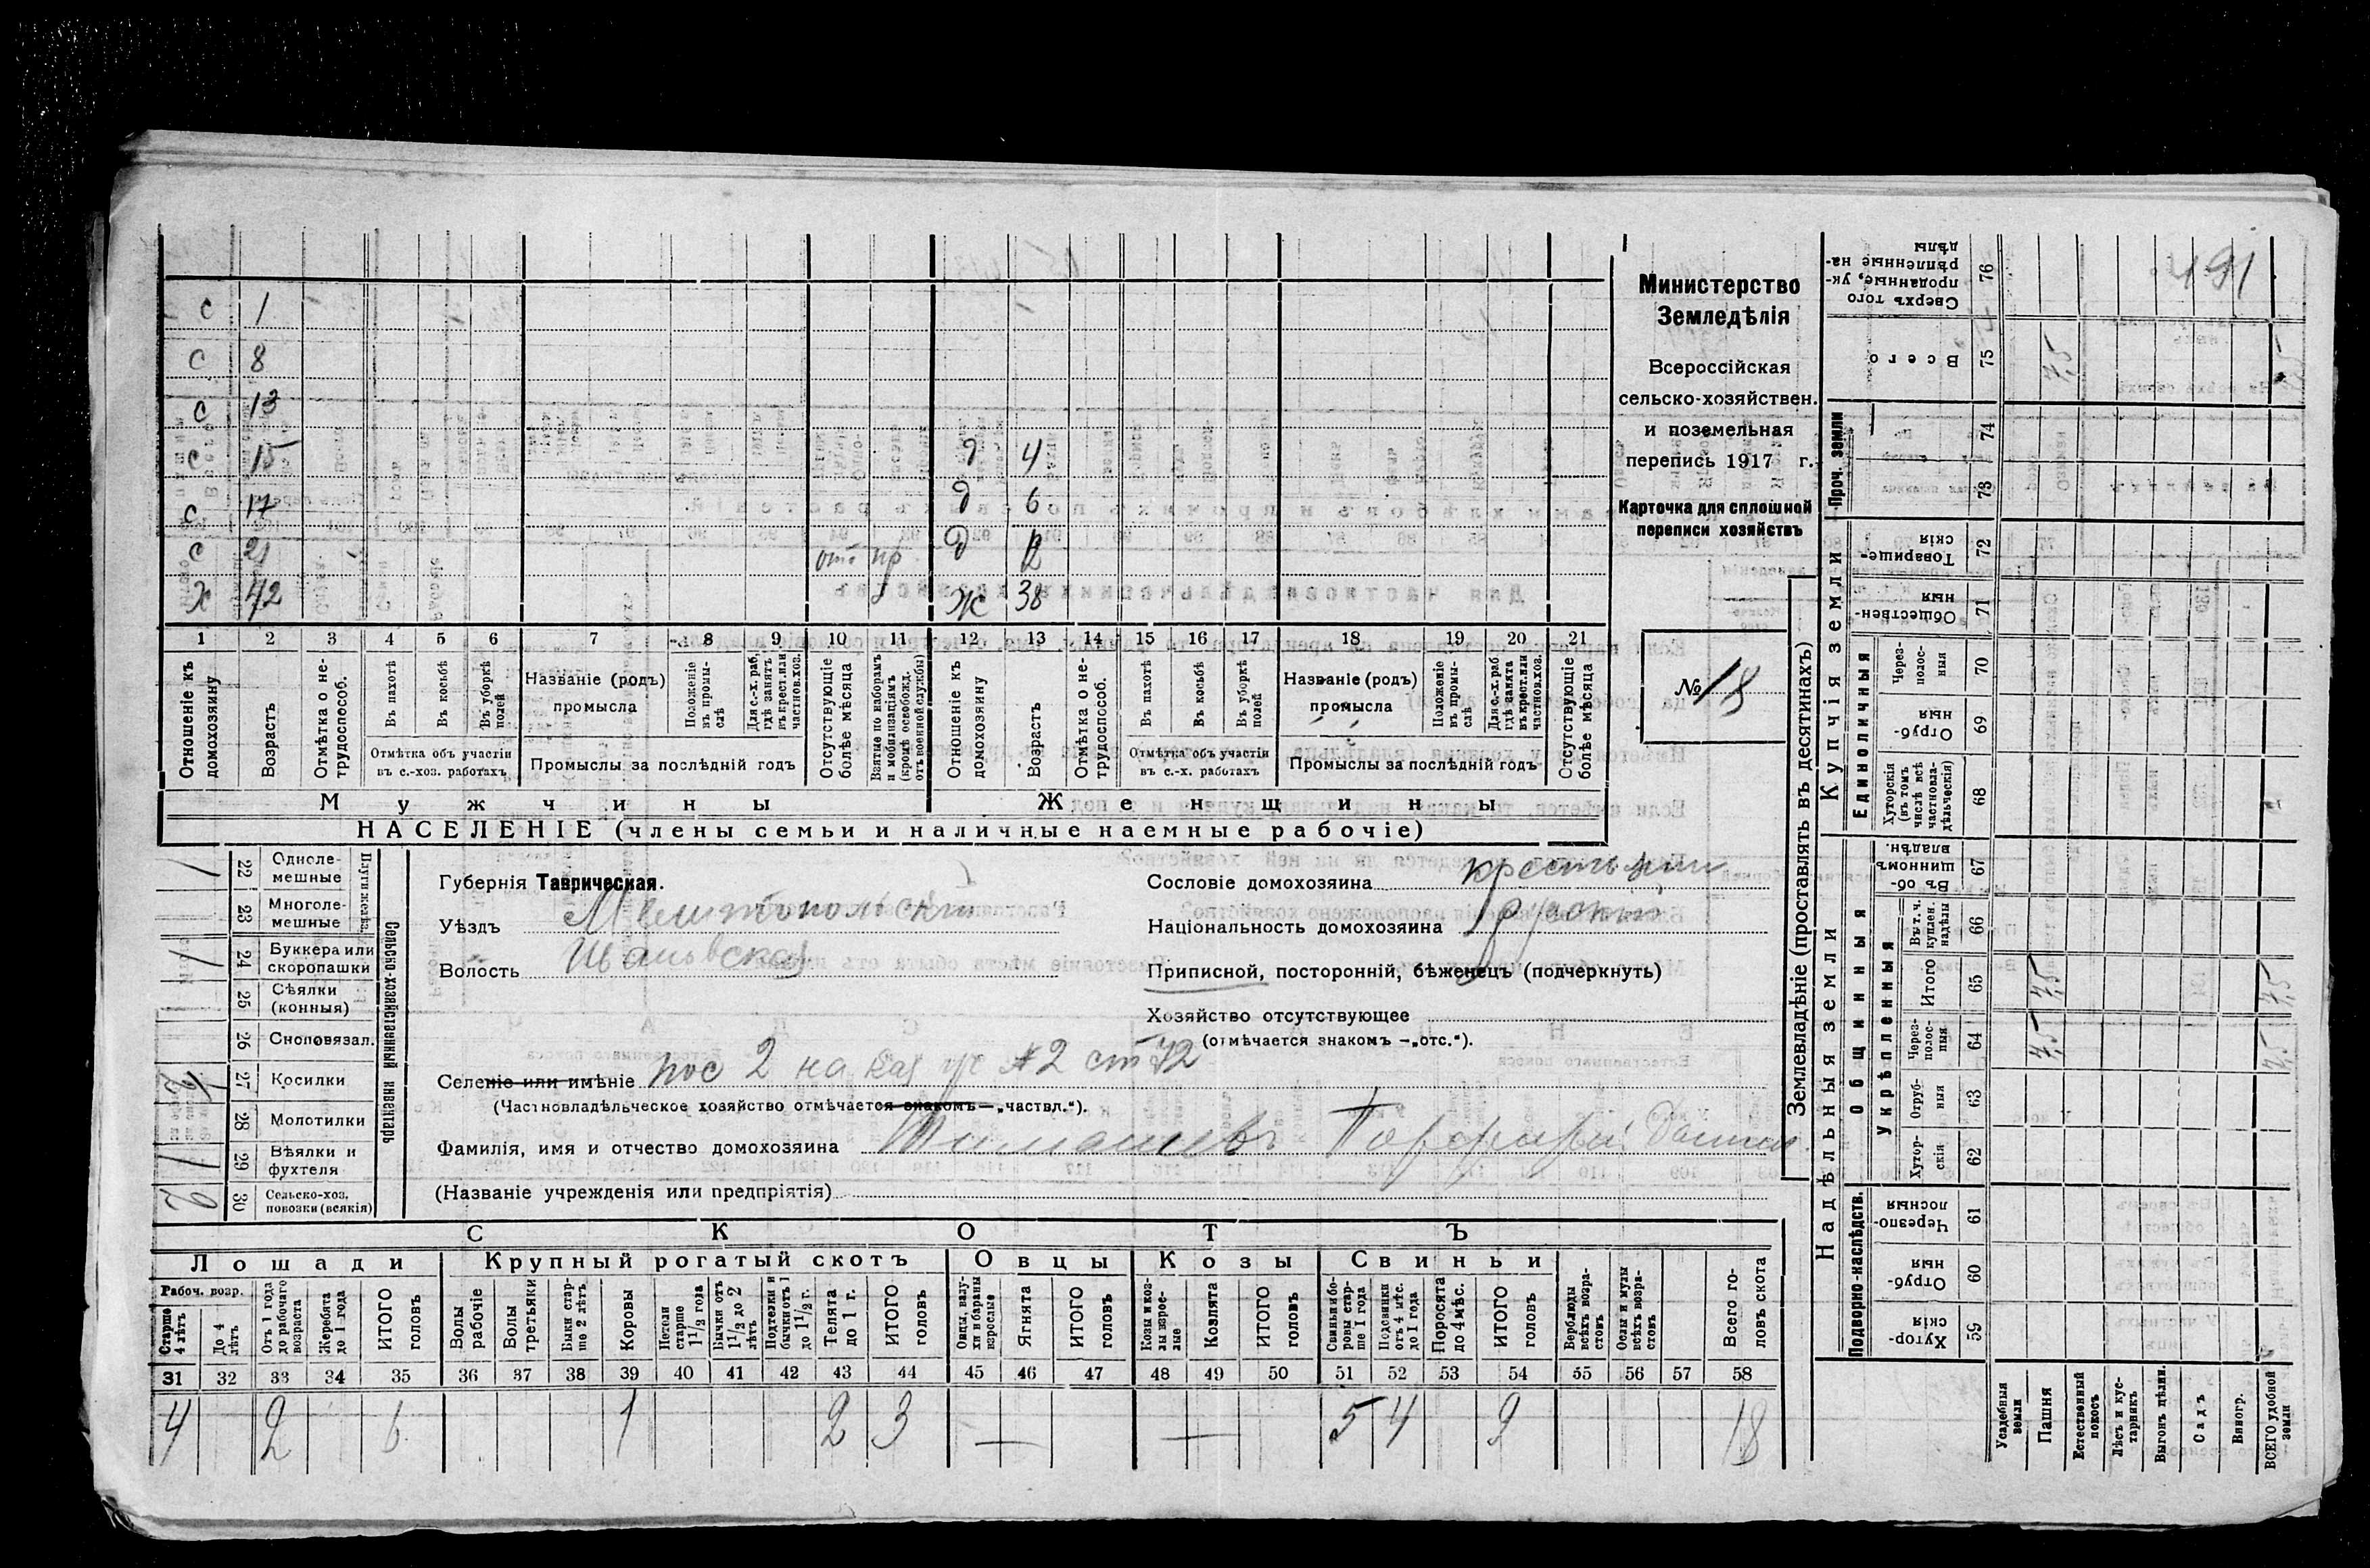 с 1
с 8
с 13
с 15 д 4
с 17 д 6
с 21 отс пр д 12
Х 42 Ж 38
1 2 3 4 5 6 7 8 9 10 11 12 13 14 15 16 17 18 19 20 21
Отношеніе къ домохозяину
Возрастъ
Отмѣтка о нетрудоспособ.
Въ пахотѣ
Въ косьбѣ
Въ уборкѣ полей
Отмѣтка объ участіи
въ с.-хоз. работахъ
Названіе (родъ)
промысла
Положеніе въ промыслѣ
Для с.-х. раб, гдѣ занятъ въ крест. или частнов. хоз.
Промыслы за послѣдній годъ
Отсутствующіе болѣе мѣсяца
Взятые по наборамъ и мобилизаціямъ (кромѣ освобожд. отъ военной службы)
Отношеніе къ домохозяину
Возрастъ
Отмѣтка о нетрудоспособ.
Въ пахотѣ
Въ косьбѣ
Въ уборкѣ полей
Отмѣтка объ участіи
въ с.-х. работахъ
Названіе (родъ)
промысла
Положеніе въ промыслѣ
Для с.-х. раб гдѣ занята въ крест. или частнов. хоз.
Промыслы за послѣдній годъ
Отсутствующіе болѣе мѣсяца
Мужчины Женщины
НАСЕЛЕНІЕ (члены семьи и наличные наемные рабочіе)
Министерство
Земледѣлія
Всероссійская
сельско-хозяйствен.
и поземельная
перепись 1917 г.
Карточка для сплошной
переписи хозяйствъ
№ 18
Сельско-хозяйственный инвентарь
Плуги желѣз.
1 22 Однолемешные
23 Многолемешные
1 24 Буккера или скоропашки
25 Сѣялки (конныя)
26 Сноповязал.
27 Косилки
28 Молотилки
1 29 Вѣялки и фухтеля
2 30 Сельско-хоз. повозки (всякія)
Губернія Таврическая.
Уѣздъ Мелитопольскій
Волость Ивановская
Сословіе домохозяина крестьянин
Національность домохозяина русскій
Приписной, посторонній, бѣженецъ (подчеркнуть)
Хозяйство отсутствующее
(отмѣчается знакомъ —„отс.“).
Селеніе или имѣніе пос 2 на каз уч № 2 ст 72
(Частновладѣльческое хозяйство отмѣчается знакомъ—„частвл.“).
Фамилія, имя и отчество домохозяина Тимашевъ Порфирій
(Названіе учрежденія или предпріятія)
СКОТЪ
Лошади Крупный рогатый скотъ Овцы Козы Свиньи
Рабоч. возр.
Старше 4 лѣтъ
До 4 лѣтъ
Отъ 1 года до рабочаго возраста
Жеребята до 1 года
ИТОГО головъ
Волы рабочіе
Волы третьяки
Быки старше 2 лѣтъ
Коровы
Нетели старше 1 1/2 года
Бычки отъ 1 1/2 до 2 лѣтъ
Подтелки и бычки отъ 1 до 1 1/2 г.
Телята до 1 г.
ИТОГО головъ
Овцы, валухи и бараны взрослые
Ягнята
ИТОГО головъ
Козы и козлы взрослые
Козлята
ИТОГО головъ
Свиньи и боровы старше 1 года
Подсвинки отъ 4 мѣс. до 1 года
Поросята до 4 мѣс.
ИТОГО головъ
Верблюды всѣхъ возрастовъ
Ослы и мулы всѣхъ возрастовъ
Всего головъ скота
31 32 33 34 35 36 37 38 39 40 41 42 43 44 45 46 47 48 49 50 51 52 53 54 55 56 57 58
4 2 6 1 2 3 — — 5 4 9 18
Землевладѣніе (проставлять въ десятинахъ)
Надѣльныя земли
Купчія земли
Проч. земли
Подворно-наслѣдств.
Общинныя
Укрѣпленныя
Единоличныя
Сверхъ того проданные, укрѣпленные надѣлы 76 491
Всего 75 7,5
74
73
Товарищескія 72
Общественныя 71
Черезполосныя 70
Отрубныя 69
Хуторскія (въ томъ числѣ всѣ частновладѣльческія) 68
Въ общинномъ владѣн. 67
Въ т. ч. куплен. надѣлы 66
Итого 65 7,5 7,5
Черезполосныя 64 7,5 7,5
Отрубныя 63
Хуторскія 62
Черезполосныя 61
Отрубныя 60
Хуторскія 59
Усадебныя земли
Пашня
Естественный покосъ
Лѣсъ и кустарникъ
Выгонъ цѣлин.
Садъ
Виногр.
ВСЕГО удобной земли